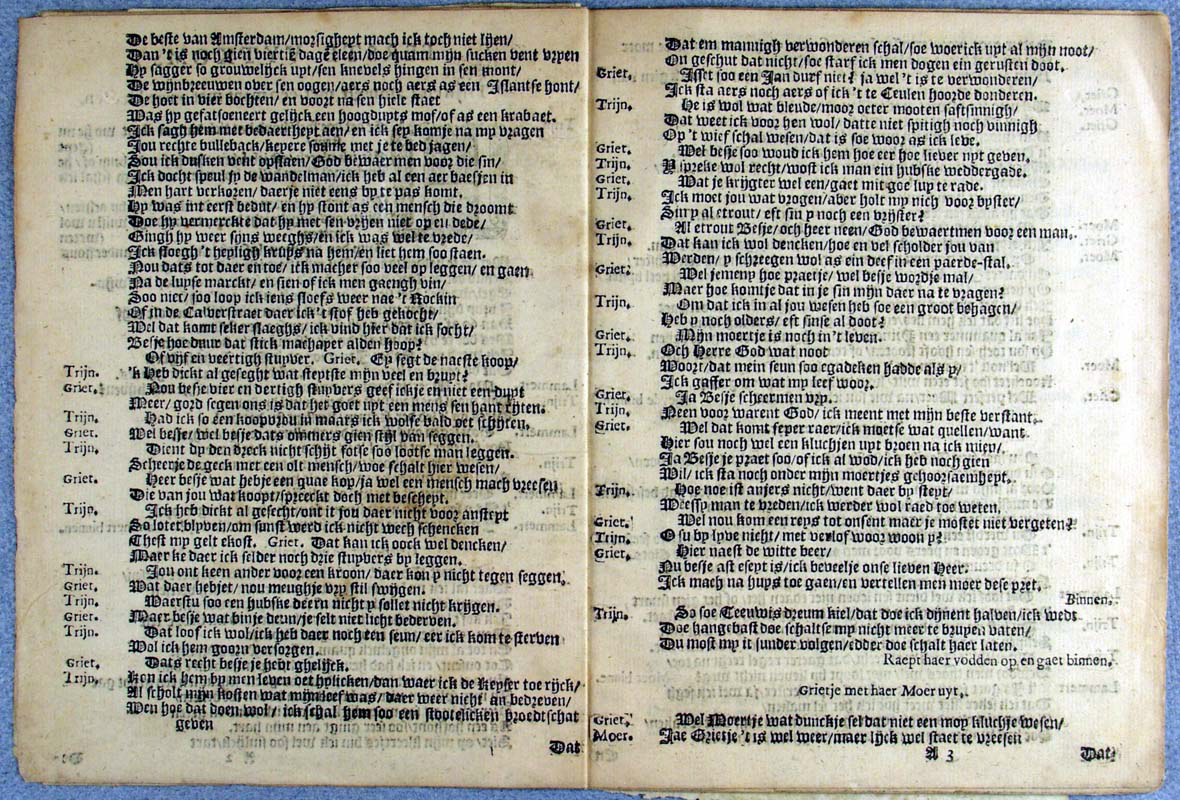 De beste van Amsterdam/morsigheyt mach ick toch niet lyen/
Dan 't is noch gien viertiē dagē eleen/doe quam mijn sucken vent vryen
Hy sagger so grouwelijck uyt/sen knevels hingen in sen mont/
De wijnbreeuwen over sen oogen/aers noch aers as een Islantse hont/
De hoet in vier bochten/en voort na sen hiele staet
Was hy gefatsoeneert gelijck een hoogduyts mof/of as een krabaet.
Ick sagh hem met bedaertheyt aen/en ick sey komje na my vragen
Jou rechte bulleback/kepere soume met je te bed jagen/
Sou ick dusken vent opstaen/God bewaer men voor die sin/
Ick docht speul jy de wandelman/ick heb al een aer baesjen in
Men hart verkoren/daerje niet eens by te pas komt.
Hy was int eerst bedut/en hy stont as een mensch die droomt
Doe hy vermerckte dat hy met sen vryen niet op en dede/
Gingh hy weer sijns weeghs/en ick was wel te vrede/
Ick sloegh 't heyligh kruys na hem/en liet hem soo staen.
Nou dats tot daer en toe/ick macher soo veel op leggen/en gaen
Na de luyse marckt/en sien of ick men gaengh vin/
Soo niet/soo loop ick iens sloefs weer nae 't Rockin
Of in de Calverstraet daer ick 't stof heb gekocht/
Wel dat komt seker slaeghs/ick vind hier dat ick socht/
Besje hoe duur dat stick machaper alden hoop?
Of vijf en veertigh stuyver. Griet. Ey segt de naeste koop/
Trijn. 'k Heb dickt al geseght wat steptste mijn veel en bruyt?
Griet. Nou besje vier en dertigh stuyvers geef ickje en niet een duyt
Meer/gord segen ons is dat het goet uyt een mens sen hant rijten.
Trijn. Had ick so een koopvrou in maars ick wolse bald oet schijten.
Griet. Wel besje/wel besje dats ommers gien stijl van seggen.
Trijn. Dient dy den dreck nicht schijt fotse soo lootse man leggen.
Scheerje de geck met een olt mensch/woe schalt hier wesen/
Griet. Heer besje wat hebje een quae kop/ja wel een mensch mach vreesen
Die van jou wat koopt/spreeckt doch met bescheyt.
Trijn. Ick heb dickt al gesecht/ont it jou daer nicht voor anstept
So lotet blyven/om sunst werd ick nicht wech schencken
Thest my gelt ekost. Griet. Dat kan ick oock wel dencken/
Maer ke daer ick selder noch drie stuyvers by leggen.
Trijn. Jou ont keen ander voor een kroon/daer kon y nicht tegen seggen.
Griet. Wat daer hebjet/nou meughje vry stil swijgen.
Trijn. Waerstu soo een hubske deern nicht y sollet nicht krijgen.
Griet. Maer besje wat binje deun/je selt niet licht bederven.
Trijn. Dat loof ick wol/ick heb daer noch ten seun/eer ick kom te sterven
Wol ick hem goorn versorgen.
Griet. Dats recht besje je hebt ghelijck.
Trijn. Ken ick hem by men leven oet hylicken/dan waer ick de Keyser toe rijck/
Al scholt mijn kosten wat mijn leef was/daer weer nicht an bedreven/
Wen hoe dat doen wol/ick schal hem soo een stootelicken broedtschat
geven
Dat
Dat em mannigh verwonderen schal/soe woerick uyt al mijn noot/
On geschut dat nicht/soe starf ick men dogen ein gerusten doot.
Griet. Isset soo een Jan durf niet? ja wel 't is te verwonderen/
Ick sta aers noch aers of ick 't te Ceulen hoorde donderen.
Trijn. He is wol wat bleude/moor octer mooten sastsinnigh/
Dat weet ick voor hen wol/datte nien spitigh noch vinnigh
Op 't wief schal wesen/dat is soe woor as ick leve.
Griet. Wel besje soo woud ick hem hoe eer hoe liever uyt geven.
Trijn. Y spreke wol recht/wost ick man ein hubske weddergade.
Griet. Wat je krijgter wel een/gaet mit goe luy te rade.
Trijn. Ick moet jou wat vrogen/aber holt my nich voor byster/
Sin y al etrout/est sin y noch een vrijster?
Griet. Al etrout Besje/och heer neen/God bewaertmen voor een man.
Trijn. Dat kan ick wol dencken/hoe en vel scholder jou van
Werden/y schreegen wol as ein deef in een paerde-stal.
Griet. Wel jemeny hoe praetje/wel besje wordje mal/
Maer hoe komtje dat in je sin mijn daer na te vragen?
Trijn. Om dat ick in al jou wesen heb soe een groot behagen/
Heb y noch olders/est sinse al doot?
Griet. Mijn moertje is noch in 't leven.
Trijn. Och Herre God wat noot
Woort/dat mein seun soo egadeken hadde als y/
Ick gaffer om wat my leef woor.
Griet. Ja Besje scheermen vry.
Trijn. Neen voor warent God/ick meent met mijn beste verstant.
Griet. Wel dat komt seper raer/ick moetse wat quellen/want
Hier sou noch wel een kluchjen uyt broen na ick mien/
Ja Besje je praet soo/of ick al wod/ick heb noch gien
Wil/ick sta noch onder mijn moertjes gehoorsaemheyt.
Trijn. Hoe noe ist anjers nicht/went daer by steyt/
Weessy man te vreden/ick werder wol raed toe weten.
Griet. Wel nou kom een reys tot onsent maer je mostet niet vergeten?
Trijn. O su by lyve nicht/met verlof woor woon y?
Griet. Hier naest de witte beer/
Nu besje ast eseyt is/ick beveelje onse lieven Heer.
Ick mach na huys toe gaen/en vertellen men moer dese pret.
Binnen.
Trijn. So soe Teeuwis dreum kiel/dat doe ick dijnent halven/ick wedt
Doe hangebast doe schaltse my nicht meer te bruyen vaten/
Du most my it sunder volgen/edder doe schalt haer laten.
Raept haer vodden op en gaet binnen.
Grietje met haer Moer uyt.
Griet. Wel Moertje wat dunckje sel dat niet een moy kluchje wesen/
Moer. Jae Grietje 't is wel weer/maer lijck wel staet te vreesen
A 3
Dat